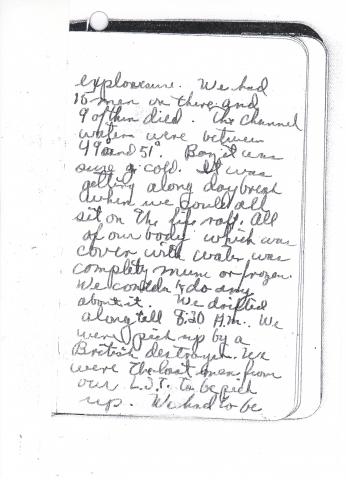 explousure. We had
16 men on there and
9 of thim died. The Channel
waters were between
49° and 51°. Boy it was
sure a cold. It was
getting along daybreak
when we could all
sit on the life raft. All
of our body which was
cover with water was
complety numm or frozen
We couldn't do any
about it. We drifted
along tell 8:30 A.M. We
were pick up by a
British destroyer. We
were the last men from
our L.S.T. to be pick
up. We had to be